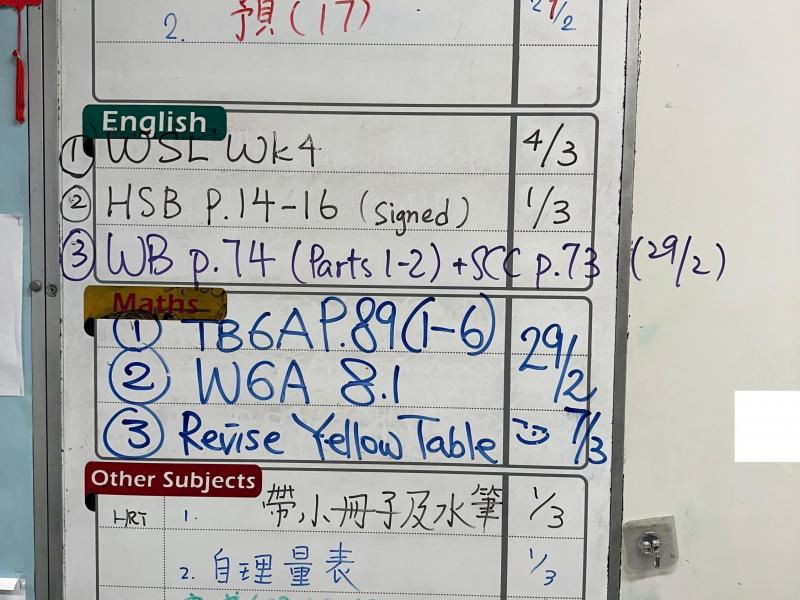 2. 預(17) 29/2
English
① WSL Wk4 4/3
② HSB p.14-16 (signed) 1/3
③ WB p.74 (Parts 1-2) + SCC p.73 (29/2)
Maths
① TB6A P.89(1-6) 29/2
② W6A 8.1
③ Revise Yellow Table 7/3
Other Subjects
HRT 1. 帶小冊子及水筆 1/3
2. 自理量表 1/3